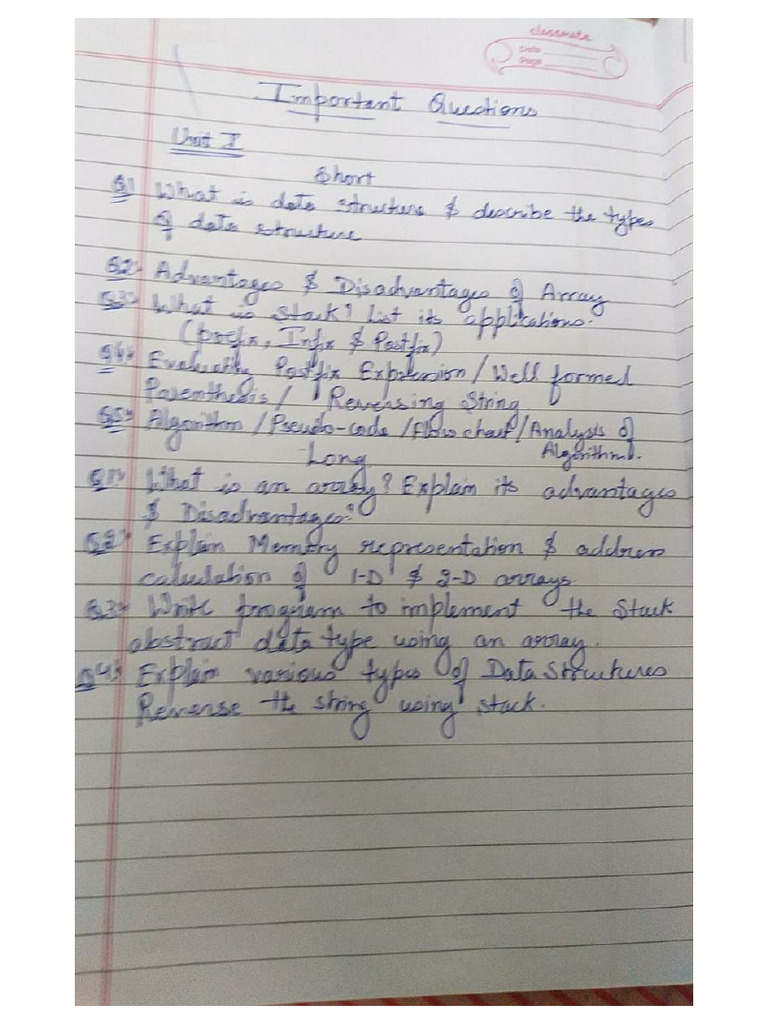 classmate
Date
Page
Important Questions
Unit I
Short
Q1 What is data structure & describe the types
of data structure
Q2:- Advantages & Disadvantages of Array
Q3:- What is Stack? list its applications.
(prefix, Infix & Postfix)
Q4:- Evaluating Postfix Expression / Well formed
Parenthesis / Reversing String
Q5:- Algorithm / Pseudo-code / flow chart / Analysis of
Algorithm.
Long
Q1:- What is an array? Explain its advantages
& Disadvantages?
Q2:- Explain Memory representation & address
calculation of 1-D & 2-D arrays.
Q3:- Write program to implement the Stack
abstract data type using an array.
Q4:- Explain various types of Data Structures
Reverse the string using stack.